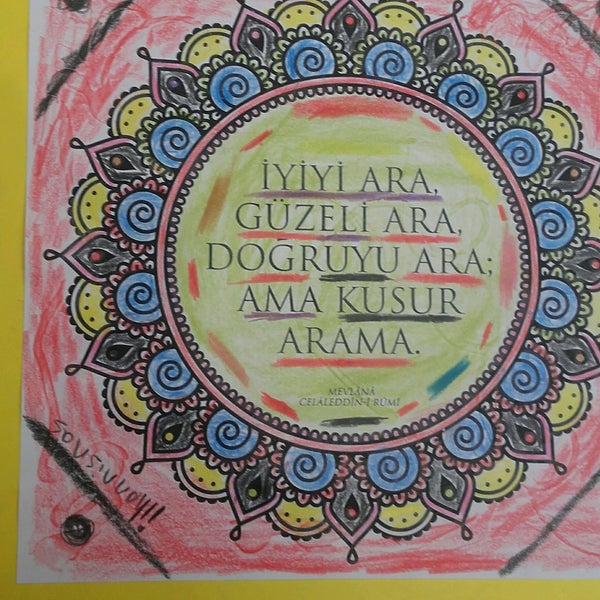 İYİYİ ARA,
GÜZELİ ARA,
DOĞRUYU ARA;
AMA KUSUR
ARAMA.
MEVLÂNÂ
CELÂLEDDİN-İ RÛMÎ